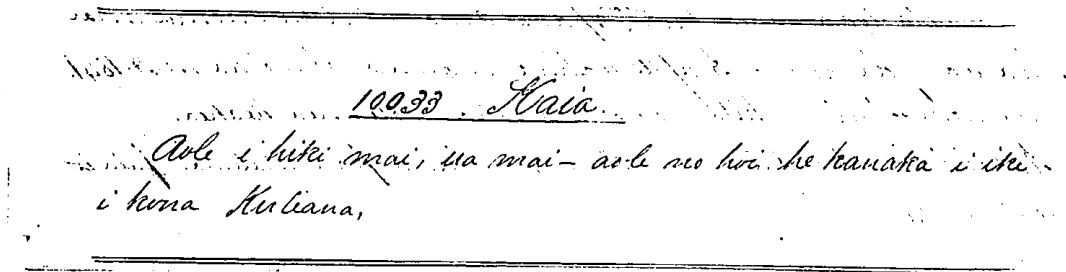 10033. Kaia.
Aole i hiki mai, ua mai – aole no hoi he kanaka i ike
i kona Kuleana,